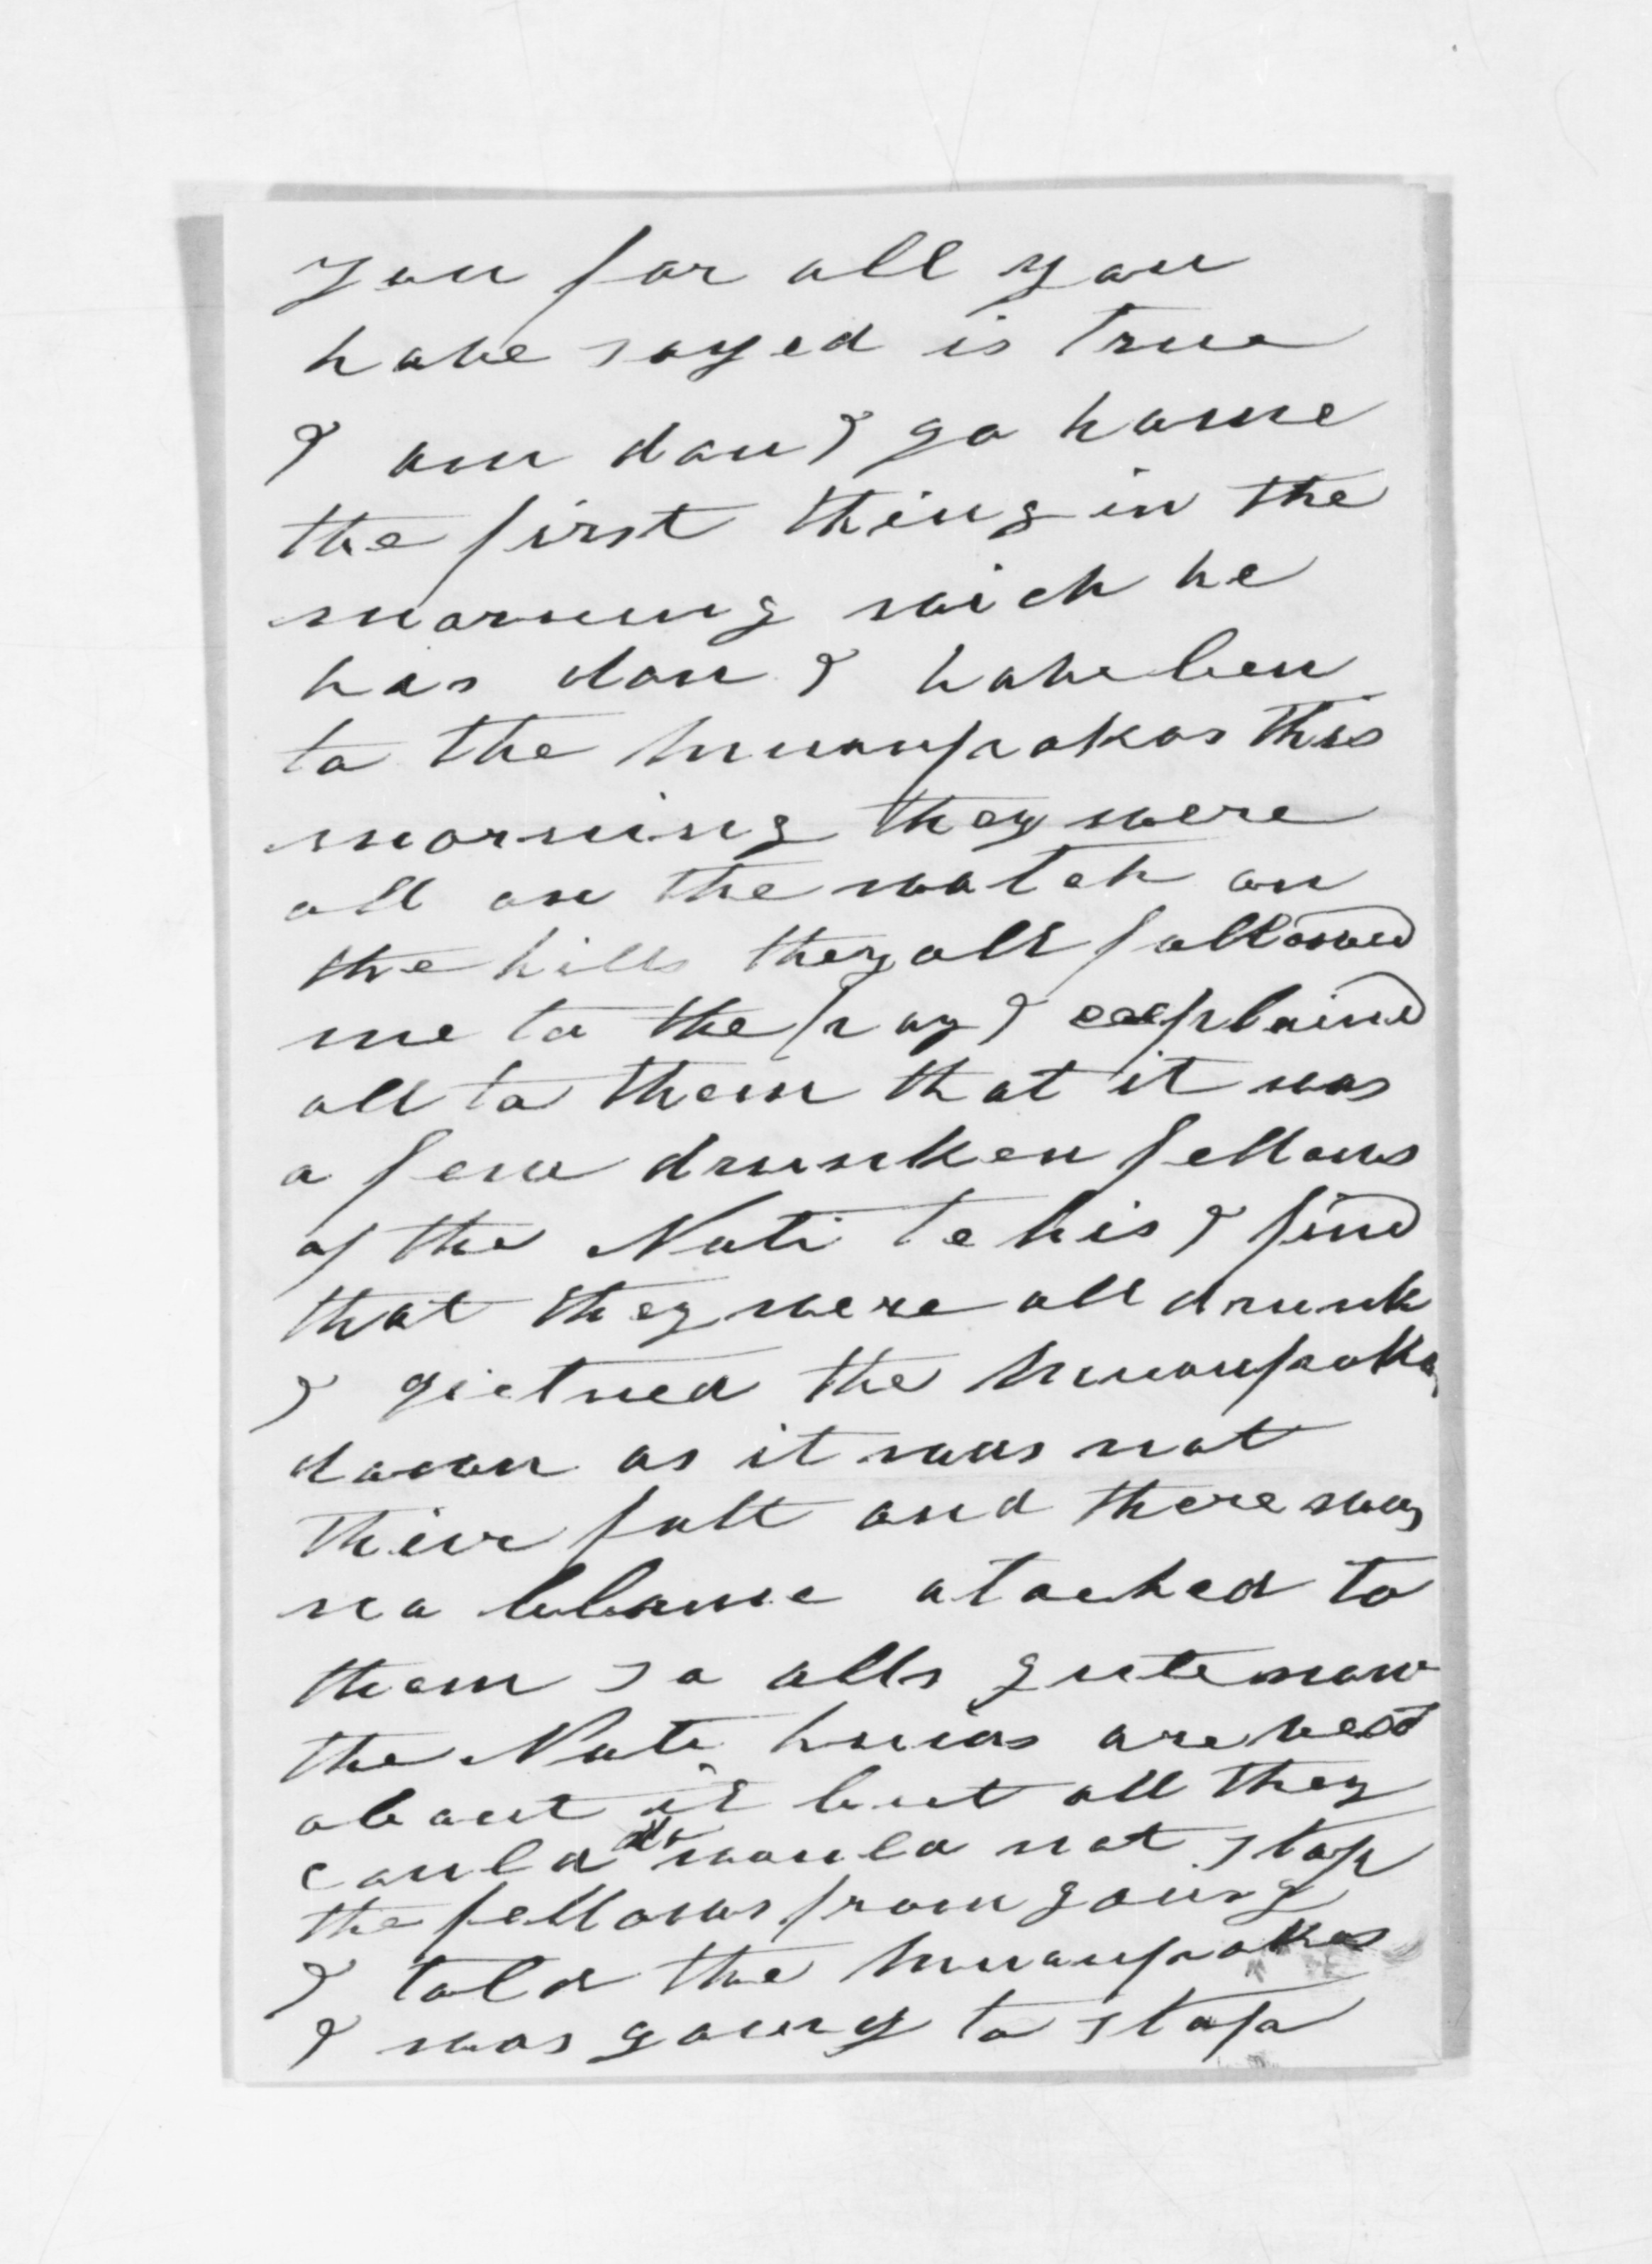 you for all you
have sayed is true
I am don I go home
the first thing in the
morning wich he
has don I have ben
to the huuaupokos this
morning they were
all on the watch on
the hills they all followed
me to the pay I explained
all to them that it was
a few drunken fellows
of the Nati te his I find
that they were all drunk
I qietned the huuaupokos
down as it was not
thier falt and there was
no blame atached to
them so alls quite now
the Nate huias are vext
about it but all they
could do would not stop
the fellows from going
I told the huuaupokos
I was going to stop